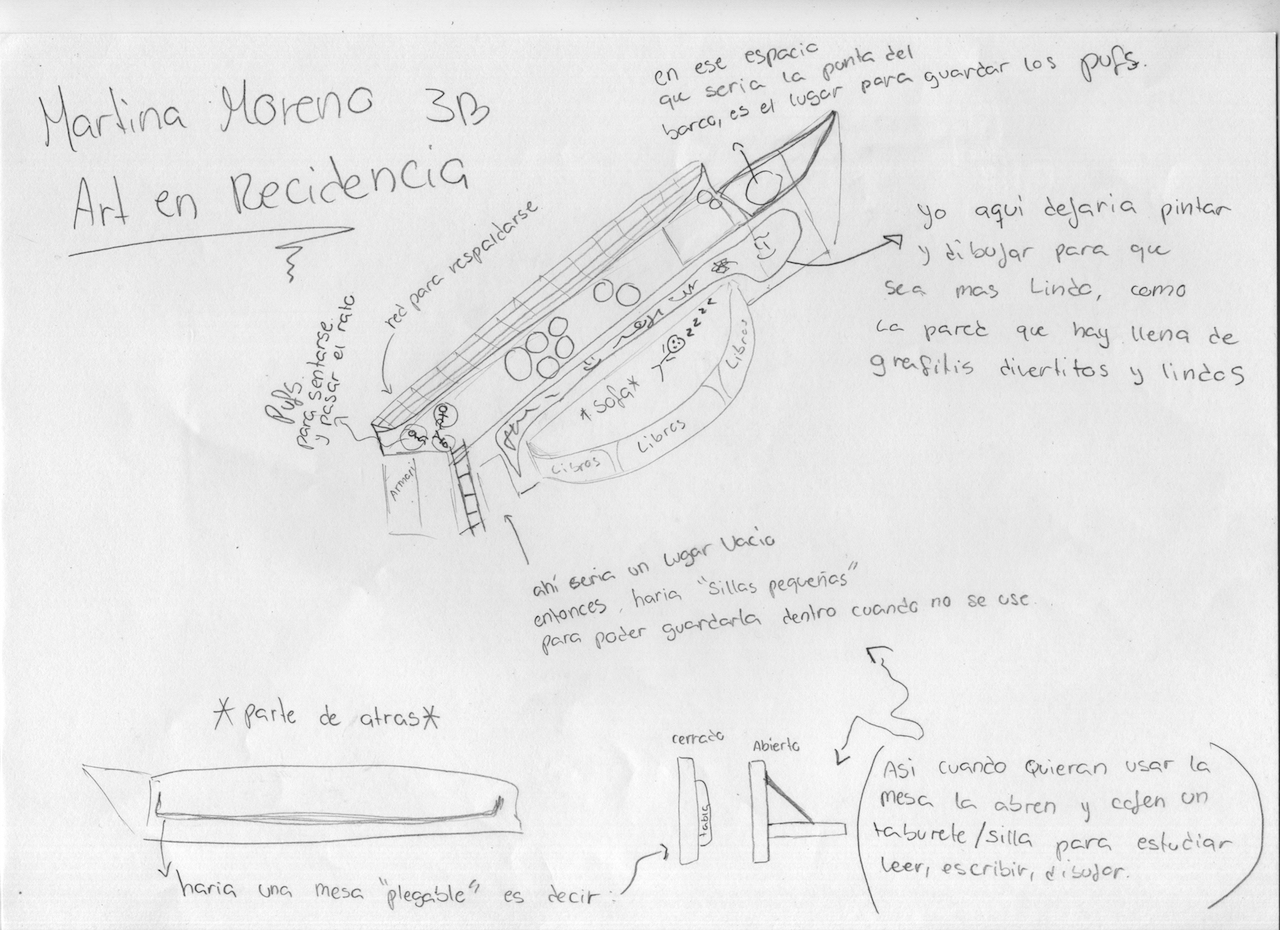 Martina Moreno 3B
Art en Recidencia
en ese espacio
que seria la punta del
barco, es el lugar para guardar los pufs.
red para respaldarse
Pufs.
para sentarse
y pasar el rato
yo aqui dejaria pintar
y dibujar para que
sea mas Lindo, como
La pared que hay llena de
grafitis divertitos y lindos
*sofa*
zzzz
Libros
Libros
Libros
Armari
ahí seria un lugar Vacio
entonces, haria "Sillas pequeñas"
para poder guardarla dentro cuando no se use.
*parte de atras*
haria una mesa "plegable" es decir:
cerrado
tabla
Abierto
(Asi cuando quieran usar la
mesa la abren y cojen un
taburete/silla para estudiar
leer, escribir, dibujar.)